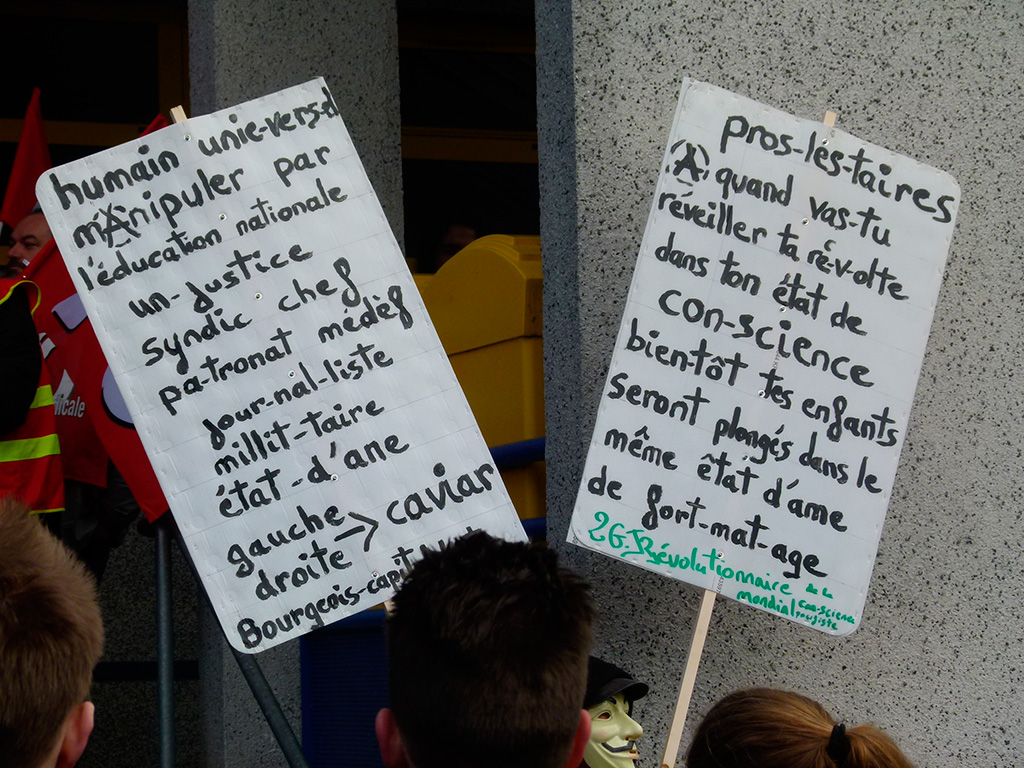 humain unie-vers-el
mAnipuler par
l'éducation nationale
un-justice
syndic chef
patronat médéf
jour-nal-liste
millit-taire
état-d'ane
gauche > caviar
droite
Bourgeois-capit
pros-lès-taires
(A) quand vas-tu
réveiller ta rév-olte
dans ton état de
con-science
bientôt tes enfants
seront plongés dans le
même êtat d'ame
de fort-mat-age
Révolutionnaire de la
mondial con-science
icale